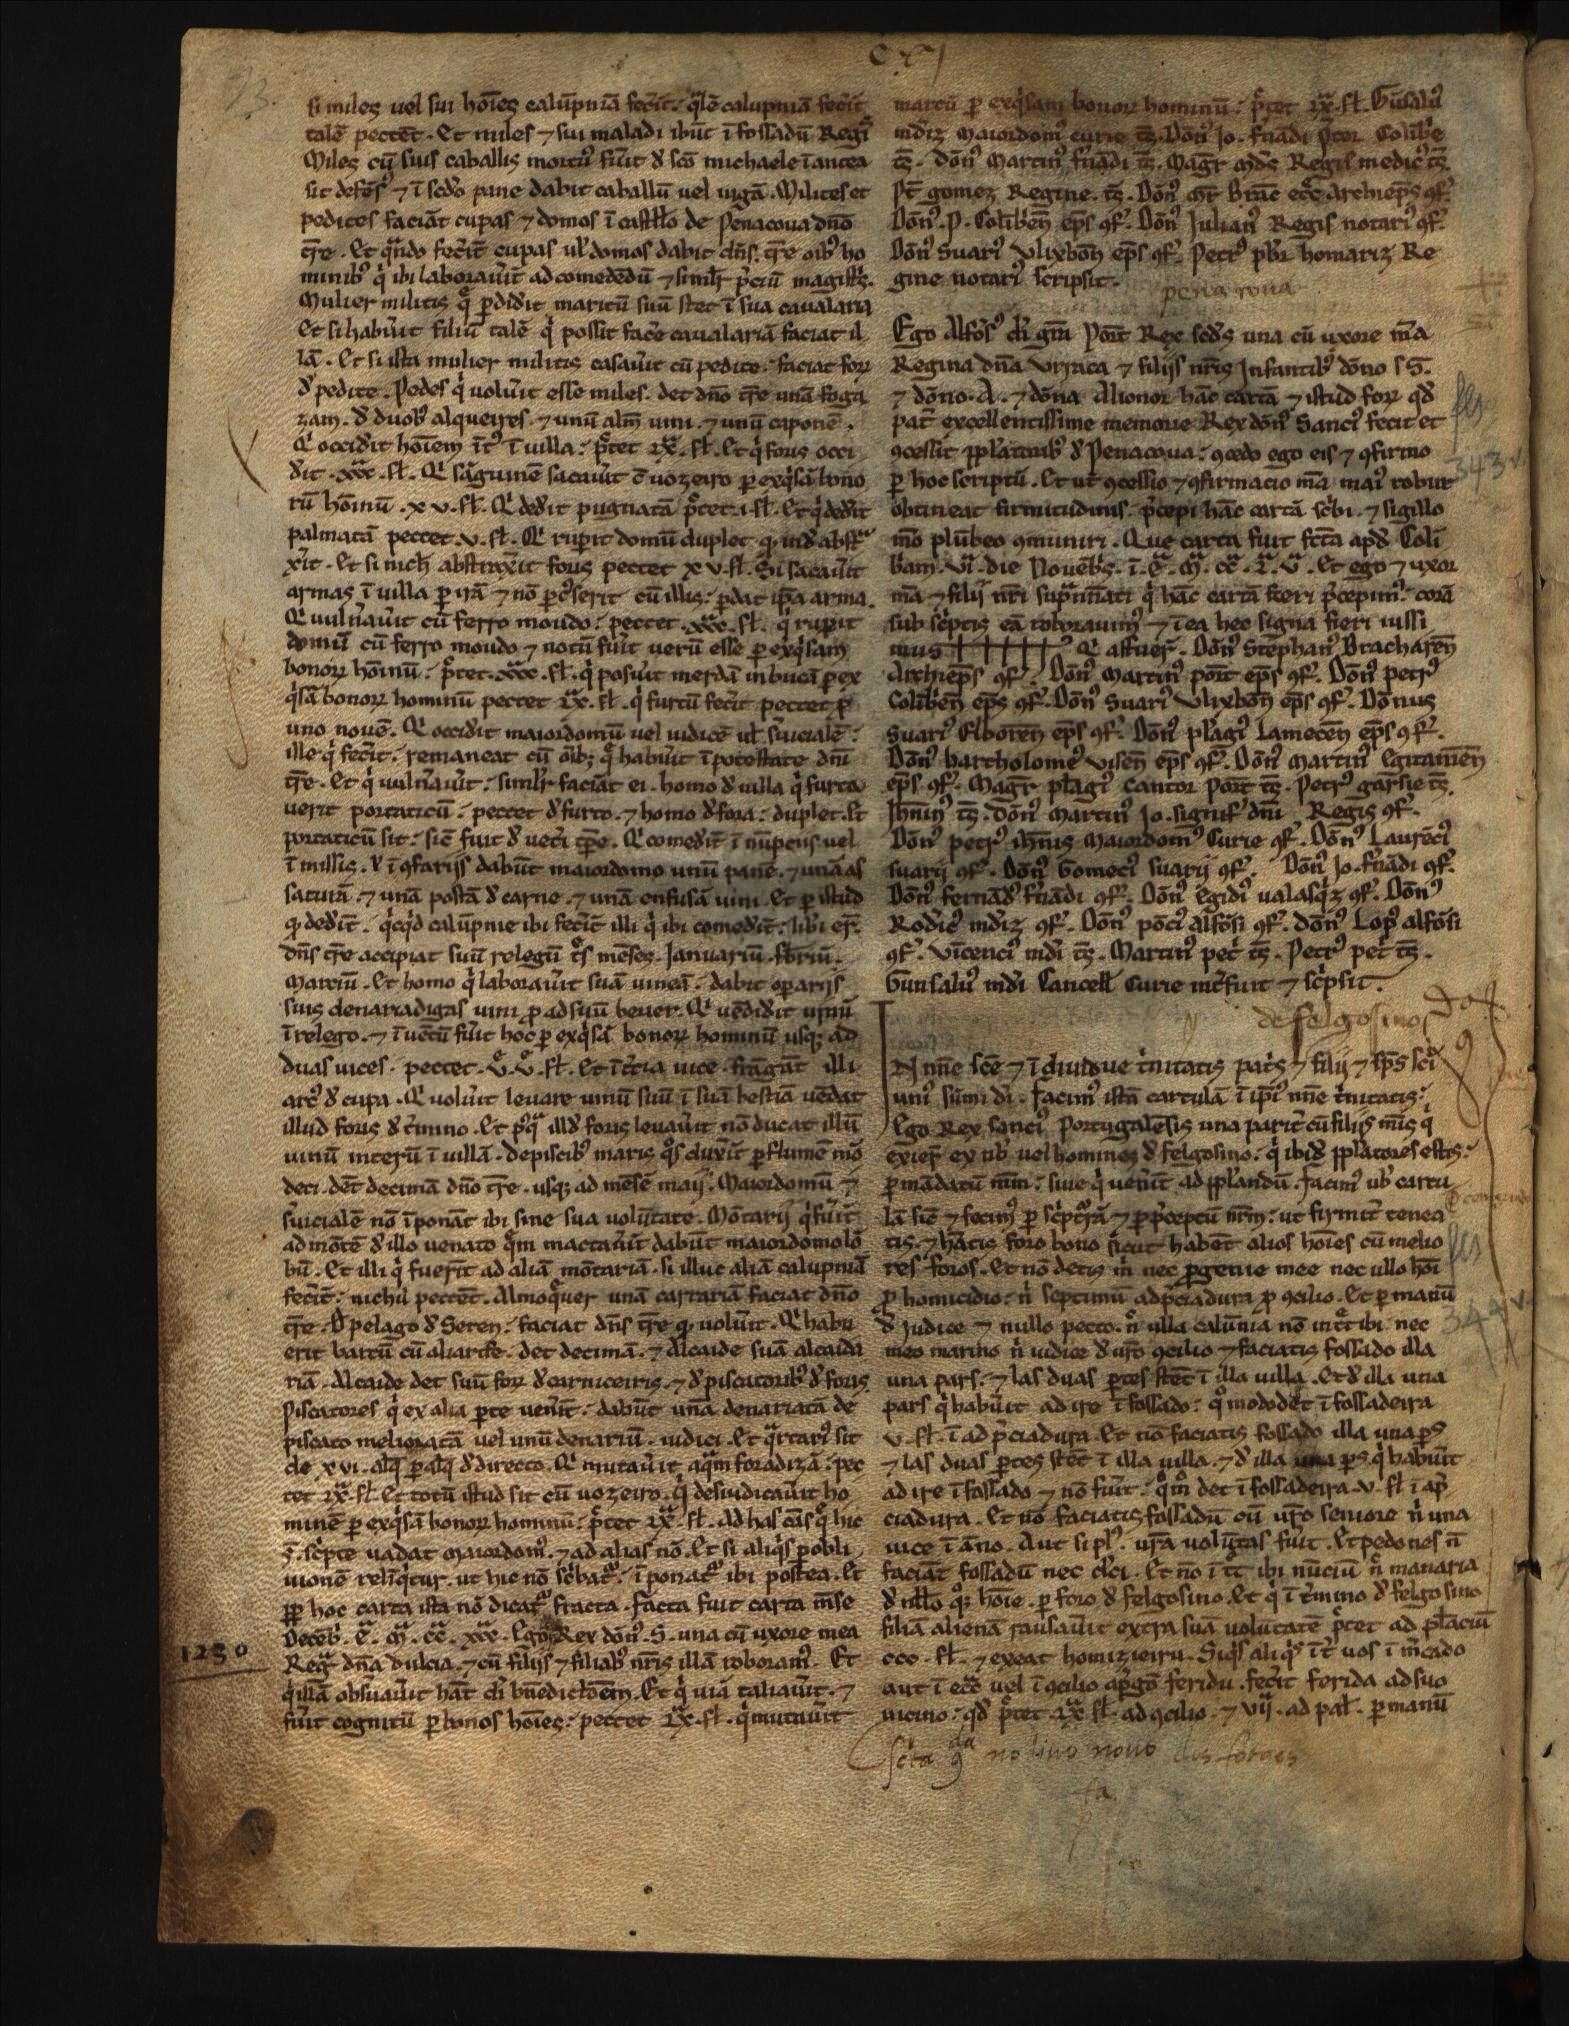 si miles uel sui hoīes calūpniā fec̄it. q̄lē calupniā fec̄it
talē pectēt. Et miles ⁊ sui maladi ibūt ī fossadū Regis
Miles cū suis caballis mortuꝰ fūit d̄ sc̄o michaele ī antea
sit defēsꝰ ⁊ ī sed̄o pane dabit caballū uel iugā. Milites et
pedites faciāt cupas ⁊ domos ī castello de Penacoua dn̄o
t̄re. Et q̄ndo fec̄it cupas ul̄ domos dabit dn̄s t̄re oībꝰ ho
minibꝰ q̇ ibi laborau̇it ad comedēdū ⁊ simil̄r p̄ciū magist̄s.
Mulier militis q̄ ꝑdid̄it maritū suū stet ī sua caualaria
Et si habūit filiū talē q̇ possit fac̄e caualariā faciat il
lā. Et si ista mulier militis casau̇it cū pedite. faciat forꝝ
d̄ pedite. Pedes q̇ uolūit esse miles. det dn̄o t̄re unā foga
zam. d̄ duobꝰ alqueires. ⁊ unū alm̄ uini. ⁊ unū caponē.
Q̇ occid̄it hoīem īt̄ꝰ ī uilla. p̄tet lx. sl̄. Et q̇ foris occi
d̄it. xxx. sl̄. Q̇ sāguinē sacau̇it ī uozeiro ꝑ exq̇sā bono
rū hoīnū. xv. sl̄. Q̇ ded̄it pugnatā p̄tet. i. sl̄. Et q̇ ded̄it
palmatā pectet v. sl̄. Q̇ rup̄it domū duplet qꝫ ind̄ abst̄
x̄it. Et si nich̄ abstrax̄it foris pectet xv. sl̄. Si sacau̇it
armas ī uilla ꝑ irā ⁊ nō ꝑc̄serit cū illis. ꝑdat ip̄a arma.
Q̇ uuln̄au̇it cū ferro moudo. pectet. xxx. sl̄. q̇ rup̄it
domū cū ferro moudo ⁊ notū fūit uerū esse ꝑ exq̇sam
bonorꝝ hoīnū. p̄tet. xxx. sl̄. q̇ posūit merdā in bucā ꝑ ex
q̇sā bonorꝝ hominū pectet lx. sl̄. q̇ furtū fec̄it pectet ꝓ
uno nouē. Q̇ occid̄it maiordomū uel iudicē ul̄ s̄uicialē.
ille q̇ fec̄it. remaneat cū oībꝫ q̄ habūit ī potestate dn̄i
t̄re. Et q̇ uuln̄au̇it. simil̄r faciāt ei. homo d̄ uilla q̇ furta
uerit portaticū. pectet d̄ furto. ⁊ homo d̄ fora. duplet. Et
portaticū sit. sic̄ fuit d̄ uet̄i tp̄e. Q̇ comed̄it ī nūpciis uel
ī missis. ⁊ ī ꝯfarijs dabūt maiordomo unū panē. ⁊ unā as
saturā. ⁊ unā postā d̄ carne. ⁊ unā enfusā uini. Et ꝑ istud
qꝫ ded̄it. q̇cq̇d calūpnie ibi fec̄it illi q̇ ibi comed̄it. lib̄i er̄t.
dn̄s t̄re accipiat suū relegū t̄s mēses. Januariū. febr̄iū.
Marciū. Et homo q̇ laborau̇it suā uineā. dabit oꝑarijs
suis denariadigas uini ꝓ ad suū beuer. Q̇ uēdid̄it uinū
ī relego. ⁊ īuētū fūit hoc ꝑ exq̇sā bonorꝝ hominū usqꝫ ad
duas uices. pectet. v. v. sl̄. Et ī t̄cia uice. frāgāt illi
arcꝰ d̄ cupa. Q̇ uolūit leuare uinū suū ī suā bestiā uēdat
illud foris d̄ t̄mino. Et pꝰq̄ illd̄ foris leuau̇it nō ducat illū
uinū interū ī uillā. de piscibꝰ maris q̄s dux̄it ꝑ flumē mō
deci. dēt decimā dn̄o t̄re. usqꝫ ad mēsē maij. Maiordomū ⁊
s̄uicialē nō īponāt ibi sine sua uolūtate. Mōtarij q̇ fūīt
ad mōtē d̄ illo uenato q̄m mactau̇it dabūt maiordomo lō
bū. Et illi q̇ fuer̄it ad aliā mōtariā. si illuc aliā calupniā
fec̄it. nichil pectēt. Almoq̄uer unā carrariā faciat dn̄o
t̄re. D̄ pelago d̄ Seren. faciat dn̄s t̄re qꝫ uolūit. Q̇ habu
erit barcū cū aliarde. det decimā. ⁊ Alcaide suā alcaida
riā. Alcaide det suū forꝝ d̄ carniceiris. ⁊ d̄ piscatoribꝰ d̄ foris
Piscatores q̇ ex alia ꝑte uen̄it. dabūt unā denariatā de
piscato melioratā uel unū denariū. iudici. Et q̄rtariꝰ sit
de xvi. alq̄ ꝑ alq̄ d̄ directo. Q̇ mutau̇it aq̄m foradizā. pec
tet lx. sl̄. Et totū istud sit cū uozeiro. q̇ desiudicau̇it ho
minē ꝑ exq̇sā bonorꝝ hominū. p̄tet lx. sl̄. Ad has cās q̄ hic
s̄. sc̄pte uadat maiordomꝰ. ⁊ ad alias nō. Et si aliq̇s ꝑ obli
uionē relīq̄tur. ut hic nō sc̄batꝰ. ī ponatꝰ ibi postea. Et
ꝓꝑ hoc carta ista nō dicatꝰ fracta. facta fuit carta m̄se
Decēb̄. E. M. cc. xxx. Ego Rex dōnꝰ. S. una cū uxore mea
Reḡ dn̄a dulcia. ⁊ cū filijs ⁊ filiabꝰ nr̄is illā roboramꝰ. Et
q̇ illā obs̄uau̇it hāt d̄i bn̄edictōem. Et q̇ uiā taliau̇it. ⁊
fūit cognitū ꝑ bonos hoīes. pectet lx. sl̄. q̇ mutau̇it
1230
marcū ꝑ exq̇sam bonorꝝ hominū. p̄tet lx. sl̄. Gūsaluꝰ
mēdiz Maiordomꝰ curie tꝭ. Dōnꝰ Jo. fn̄adi p̄tor Colībr̄e
tꝭ. dōnꝰ Martinꝰ fn̄adi tꝭ. Maḡr mēdꝰ Regis medicꝰ tꝭ.
Pet̄ gomez Regine. tꝭ. Dōnꝰ Mr̄t Brac̄ ecc̄e Archiep̄s ꝯf̄.
Dōnꝰ. P. Colībrēn ep̄s ꝯf̄. Dōnꝰ Julianꝰ Regis notariꝰ ꝯf̄.
Dōnꝰ Suariꝰ Vlixbōn ep̄s ꝯf̄. Petrꝰ pb̄r homariz Re
gine notariꝰ scripsit.
pena coua
Ego Alfōsꝰ d̄i gr̄a Port̄ Rex scd̄s una cū uxore m̄a
Regina dn̄a Vrraca ⁊ filijs nr̄is Jnfantibꝰ dōno. S.
⁊ dōno. A. ⁊ dōna Alionor hāc cartā ⁊ istud forꝝ qd̄
pat̄ excellentissime memorie Rex dōnꝰ Sanciꝰ fecit et
ꝯcessit pp̄latoribꝰ d̄ Penacoua. ꝯcedo ego eis ⁊ ꝯfirmo
ꝑ hoc scriptū. Et ut ꝯcessio ⁊ ꝯfirmacio m̄a maiꝰ robur
obtineat firmitudinis. p̄cepi hāc cartā sc̄bi. ⁊ sigillo
m̄o plūbeo ꝯmuniri. Que carta fuit fc̄ta apd̄ Coli
bām. vi. die Nouēb̄s. ī. E. M. cc. l. v. Et ego ⁊ uxor
m̄a ⁊ filij nr̄i sup̄nōīati q̇ hāc cartā fieri p̄cepimꝰ. corā
sub sc̄ptis eā roborauimꝰ ⁊ ī ea hec signa fieri iussi
mus ┼┼┼┼┼ Q̇ affuer̄. Dōnꝰ Stephanꝰ Bracharēn
Archiep̄s ꝯf̄. Dōnꝰ Martinꝰ port̄ ep̄s ꝯf̄. Dōnꝰ petrꝰ
Colībrēn ep̄s ꝯf̄. Dōnꝰ Suariꝰ Vlixbōn ep̄s ꝯf̄. Dōnus
Suariꝰ Elborēn ep̄s ꝯf̄. Dōnꝰ pl̄agiꝰ Lamecēn ep̄s ꝯf̄.
Dōnꝰ bartholomeꝰ Visēn ep̄s ꝯf̄. Dōnꝰ Martinꝰ Egitaniēn
ep̄s ꝯf̄. Maḡr pl̄agiꝰ Cantor Port̄ tꝭ. Petrꝰ garsie tꝭ.
Jhn̄iꝰ tꝭ. Dōnꝰ Martinꝰ Jo. signif̄ dn̄i Regis ꝯf̄.
Dōnꝰ petrꝰ ihn̄is Maiordomꝰ Curie ꝯf̄. Dōnꝰ Laurēciꝰ
suarij ꝯf̄. Dōnꝰ Gomeciꝰ suarij ꝯf̄. Dōnꝰ Jo. fn̄adi ꝯf̄.
Dōnꝰ fernādꝰ fn̄adi ꝯf̄. Dōnꝰ Egidiꝰ ualasq̄z ꝯf̄. Dōnꝰ
Rod̄icꝰ mēdiz ꝯf̄. Dōnꝰ pōciꝰ Alfōsi ꝯf̄. dōnꝰ Lopꝰ alfōsi
ꝯf̄. Vīcenciꝰ mēdi tꝭ. Martinꝰ pet̄ tꝭ. Petrꝰ pet̄ tꝭ.
Gunsaluꝰ mēdi Cancell̄ Curie int̄fuit ⁊ sc̄psit.
de felgosino
IN nn̄e sc̄e ⁊ īdiuidue t̄nitatis pat̄s ⁊ filij ⁊ sp̄s sc̄i
uniꝰ sūmi d̄i. facimꝰ istā cartulā ī ip̄iꝰ nn̄e t̄nitatis.
Ego Rex sanciꝰ Portugalēsis una parit̄ cū filijs m̄is q̇
exier̄ ex ub̄ uel homines d̄ felgosino. q̇ ibid̄ pp̄latores estis.
ꝑ mādatū m̄m. siue q̇ uen̄it ad pp̄landū. facimꝰ ub̄ cartu
lā sic̄ ⁊ fecimꝰ ꝑ sc̄pt̄rā ⁊ ꝑ p̄ceptū nr̄m. ut firmit̄ tenea
tis. ⁊ hātis foro bono sicut habēt alios hoīes cū melio
res foros. Et nō detis m̄ nec ꝓgenie mee nec ullo hoī
ꝓ homicidio. n̄ septimū ad p̄ciadura ꝓ ꝯcilio. Et ꝑ manū
d̄ Judice ⁊ nullo pecto. n̄ ulla calūnia nō int̄t ibi. nec
meo marino n̄ iudice d̄ ur̄o ꝯcilio ⁊ faciatis fossado illa
una pars. ⁊ las duas ꝑtes stēt ī illa uilla. Et d̄ illa una
pars q̇ habūit ad ire ī fossado. q̄modo dēt ī fossadeira
v. sl̄. ī ad p̄ciadura. Et nō faciatis fossado illa una ꝑs
⁊ las duas ꝑtes stēt ī illa uilla. ⁊ d̄ illa una ꝑs q̇ habūit
ad ire ī fossado ⁊ nō fūit. q̄m̄ det ī fossadeira. v. sl̄ ī ap̄
ciadura. Et nō faciatis fossadū cū ur̄o seniore n̄ una
uice ī āno. Aut si plꝰ. ur̄a uolūtas fūit. Et pedones n̄
faciāt fossadū nec cl̄ici. Et nō īt̄t ibi nūciū n̄ manaria
d̄ nll̄o qꝫ hoīe. ꝑ foro d̄ felgosino. Et q̇ ī t̄mino d̄ felgosino
filiā alienā rausau̇it extra suā uolūtatē p̄tet ad pl̄aciū
ccc. sl̄. ⁊ exeat homizieiru. Siq̇s aliq̇s īt̄ uos ī m̄cado
aut ī ecc̄a uel ī ꝯcilio ap̄goē feridu. fec̄it ferida ad suo
uicino. qd̄ p̄tet lx. sl̄. ad ꝯcilio. ⁊ vij. ad pal̄. ꝑ manū
no liuro nouo dos foraes
343 v.
344 v.